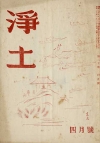 淨土
四月號